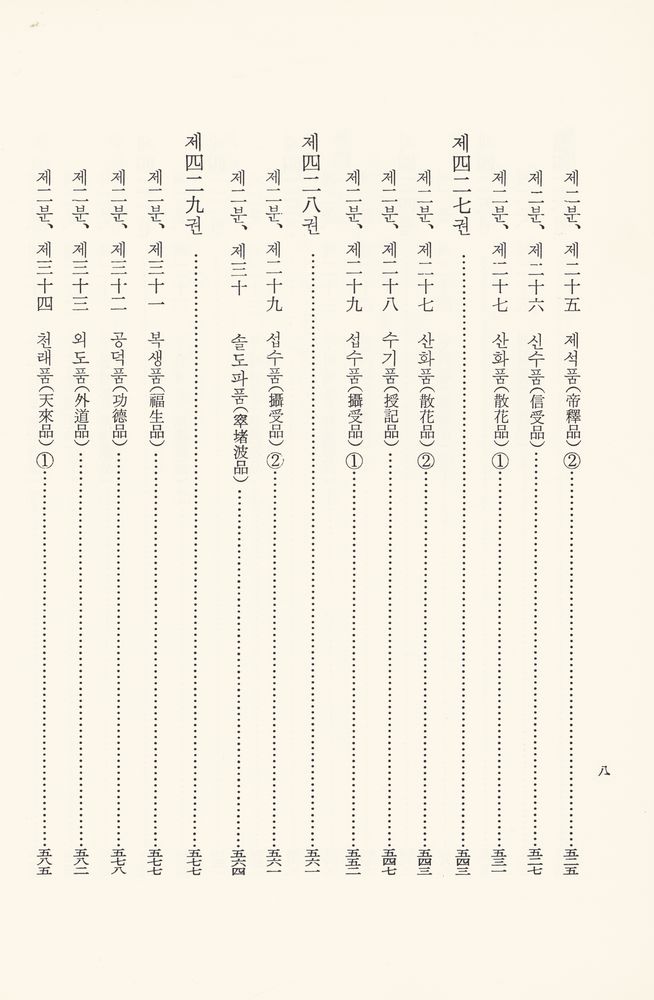 八
제二분、제二十五 제석품(帝釋品)②……五二五
제二분、제二十六 신수품(信受品)……五二七
제二분、제二十七 산화품(散花品)①……五三一
제四二七권……五四三
제二분、제二十七 산화품(散花品)②……五四三
제二분、제二十八 수기품(授記品)……五四七
제二분、제二十九 섭수품(攝受品)①……五五二
제四二八권……五六一
제二분、제二十九 섭수품(攝受品)②……五六一
제二분、제三十 솔도파품(窣堵波品)……五六四
제四二九권……五七七
제二분、제三十一 복생품(福生品)……五七七
제二분、제三十二 공덕품(功德品)……五七八
제二분、제三十三 외도품(外道品)……五八二
제二분、제三十四 천래품(天來品)①……五八五